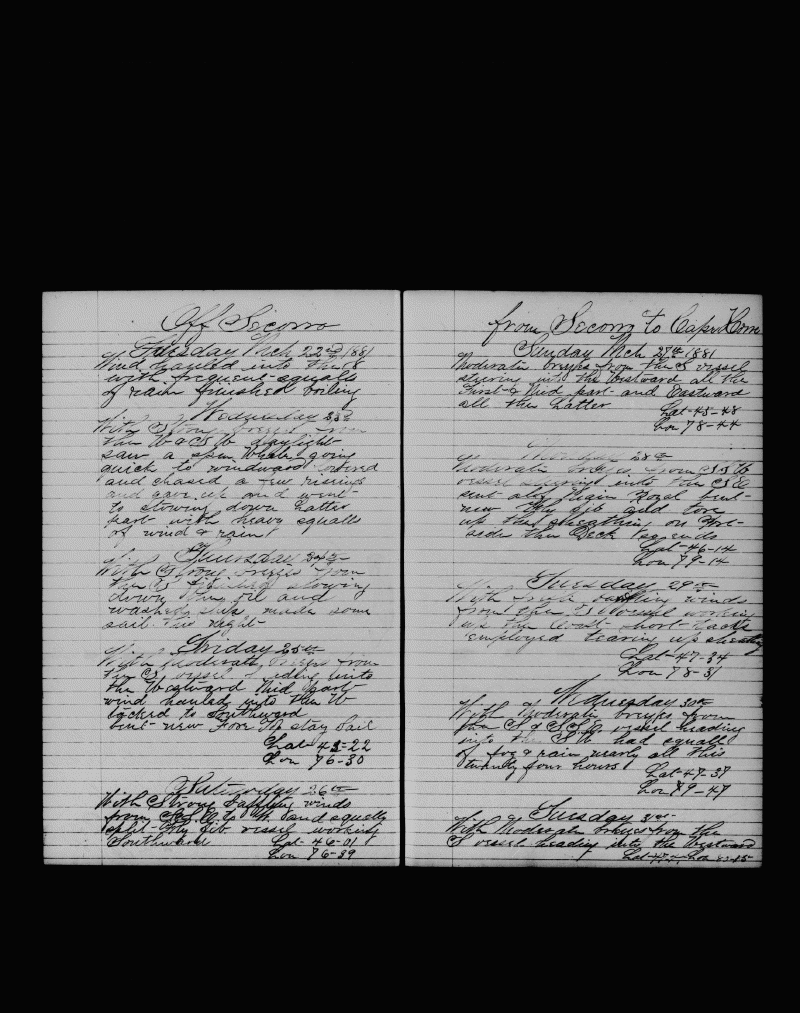 Off Socorro
Tuesday Mch 22nd 1881
Wind hauled into the S
with frequent squalls
of rain finished boiling
Wednesday 23d
With Strong breezes from
the W & S W daylight
saw a spm whale going
quick to windward lowered
and chased a few risings
and gave up and went
to stowing down Latter
part with heavy squalls
of wind & rain
Thursday 24th
With Strong breezes from
the S finished stowing
down the oil and
washed ship made some
sail this night
Friday 25th
With Moderate breezes from
the S vessel heading into
the Westward Mid part
wind hauled into the W
tacked to Southward
bent new Fore T stay Sail
Lat 43-22
Lon 76-30
Saturday 26th
With Strong baffling winds
from to W and squally
split Fly jib vessel working
Southward Lat 46-01
Lon 76-39
from Socorro to Cape Horn
Sunday Mch 27th 1881
Moderate breezes from the S vessel
steering into the Westward all the
First & Mid part and Eastward
all the Latter Lat 45-48
Lon 78-44
Monday 28th
Moderate breezes from S S W
vessel steering into the S E
sent aloft Main Royal bent
new Fly jib and tore
up the sheathing on Port
side the Deck So ends
Lat 46-14
Lon 79-14
Tuesday 29th
With fresh baffling winds
from the vessel working
up the Coast short tacks
employed tearing up
Lat 47-34
Lon 78-31
Wednesday 30th
With Moderate breezes from
the S & S S E vessel heading
into the S W had squalls
of fog & rain nearly all this
twenty four hours Lat 47-37
Lon 79-47
Tuesday 31st
With Moderate breezes from the
S vessel heading into the Westward
Lat Lon